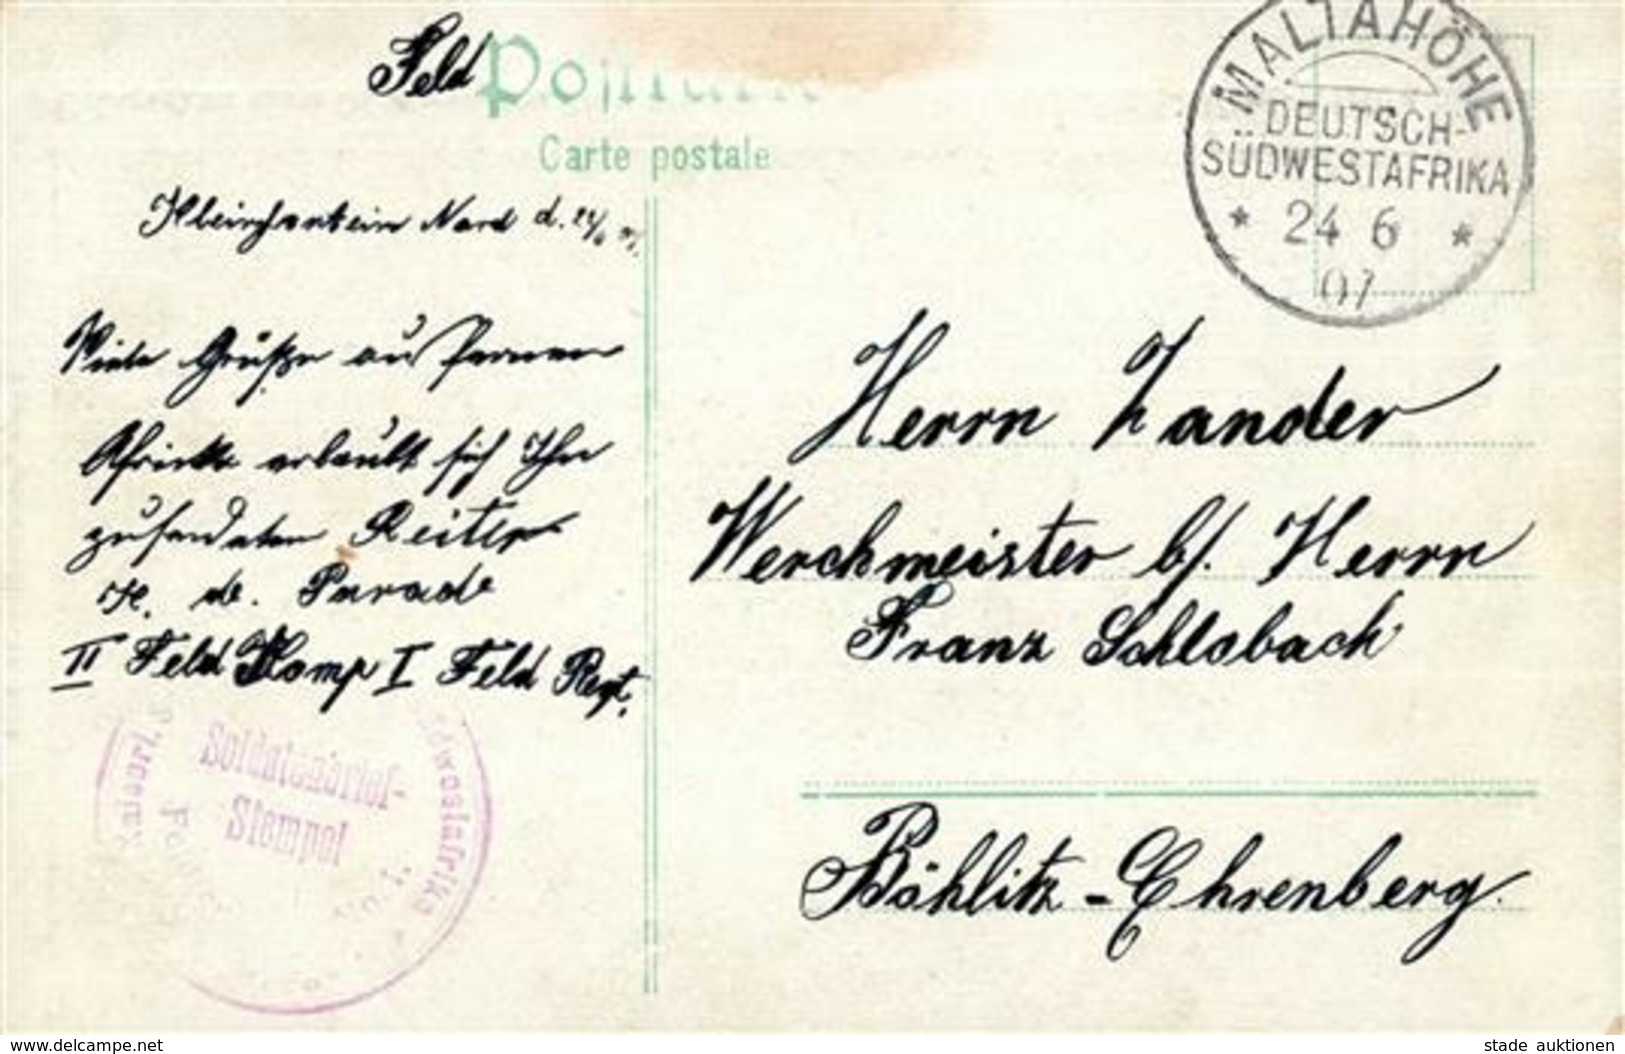 Feld Postkarte
Carte postale
MALTAHÖHE
DEUTSCH-
SÜDWESTAFRIKA
* 24 6 *
07
Nord d. 22/6 07.
Viele Grüße aus fernen
Afrika erlaubt sich Ihr
zusendeten Reiter
Parade
II Feld Komp I Feld Regt.
Herrn Zander
Werchmeister b/. Herrn
Franz Schlobach
Böhlitz-Ehrenberg.
Kaiserl. Südwestafrika
Soldatenbrief-
Stempel
No. 1.
www.delcampe.net
stade auktionen